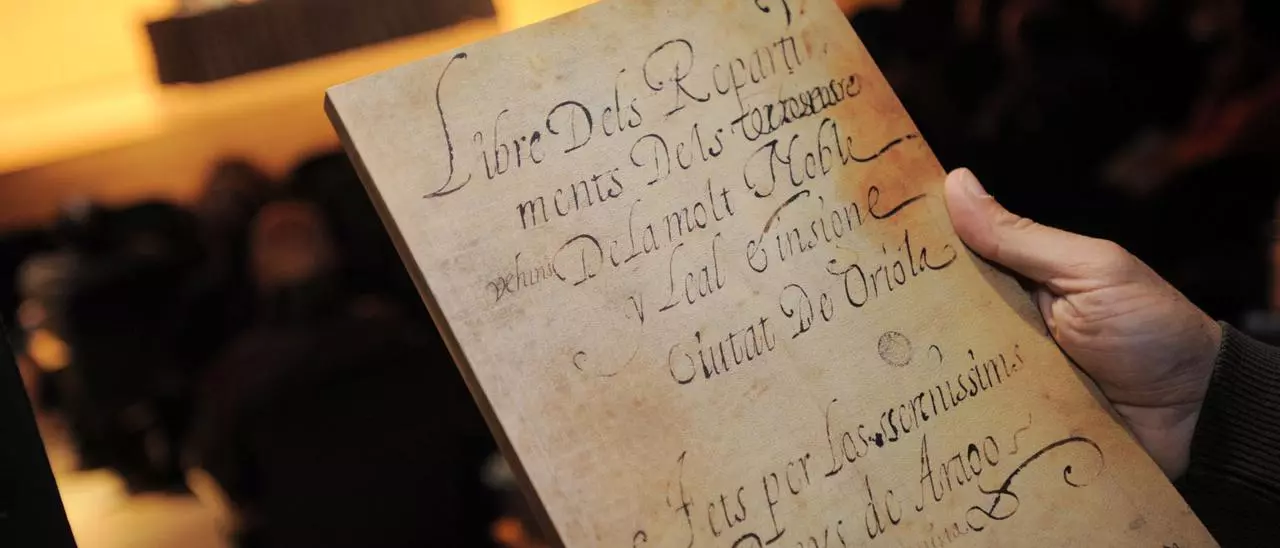 Libre Dels Reparti,
ments Dels terres
vehins Dela molt Noble
y Leal & insione
Ciutat De Oriola
Fets per Los sserenissims
Reys de Arago